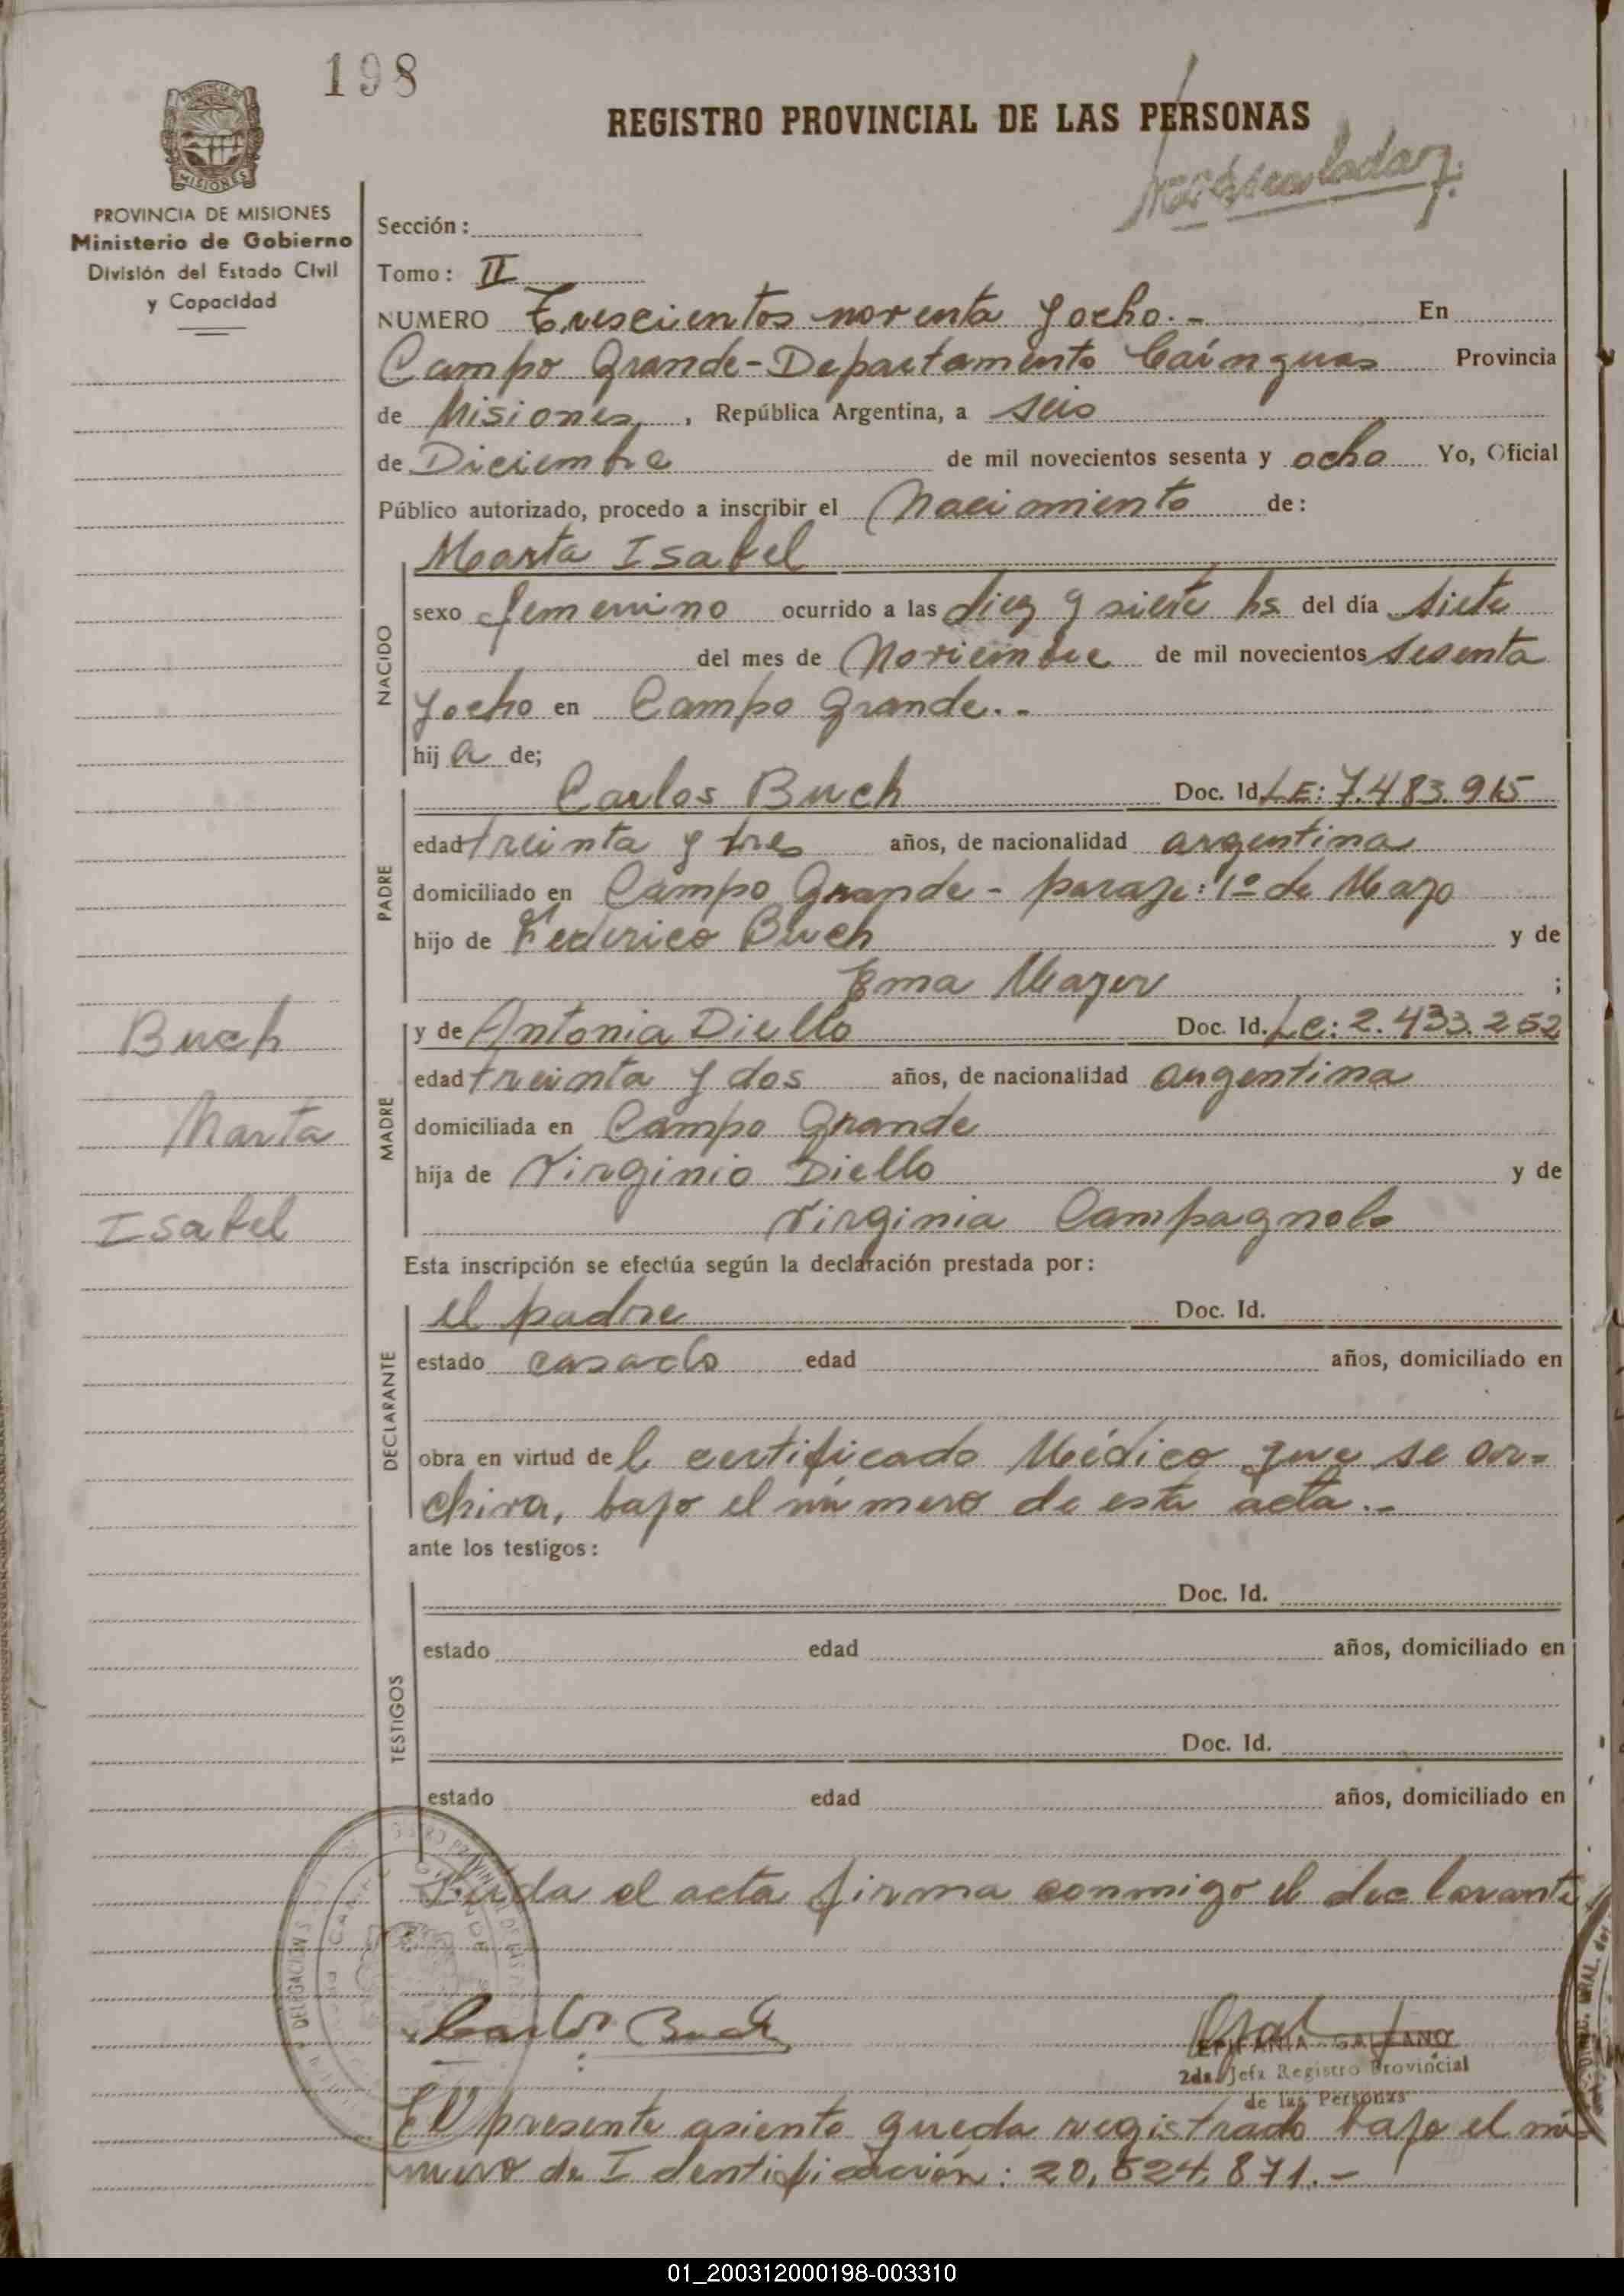 198
REGISTRO PROVINCIAL DE LAS PERSONAS
PROVINCIA DE MISIONES
Ministerio de Gobierno
División del Estado Civil
y Capacidad
Sección:
Tomo: II
NUMERO Trescientos noventa y ocho.- En
Campo Grande - Departamento Caínguas Provincia
de Misiones, República Argentina, a seis
de Diciembre de mil novecientos sesenta y ocho Yo, Oficial
Público autorizado, procedo a inscribir el Nacimiento de:
Marta Isabel
NACIDO
sexo femenino ocurrido a las diez y siete hs del día siete
del mes de Noviembre de mil novecientos sesenta
y ocho en Campo Grande.-
hija de;
PADRE
Carlos Buch Doc. Id. LE: 7.483.915
edad treinta y tres años, de nacionalidad argentina
domiciliado en Campo Grande - paraje: 1º de Mayo
hijo de Federico Buch y de
Ema Mayer ;
MADRE
y de Antonia Diello Doc. Id. LC: 2.433.252
edad treinta y dos años, de nacionalidad argentina
domiciliada en Campo Grande
hija de Virginio Diello y de
Virginia Campagnolo
Buch
Marta
Isabel
Esta inscripción se efectúa según la declaración prestada por:
DECLARANTE
el padre Doc. Id.
estado casado edad años, domiciliado en
obra en virtud del certificado Médico que se ar=
chiva, bajo el número de esta acta.-
ante los testigos:
TESTIGOS
Doc. Id.
estado edad años, domiciliado en
Doc. Id.
estado edad años, domiciliado en
Leída el acta firma conmigo el declarante
Carlos Buch
EPIFANIA GALEANO
2da. Jefa Registro Provincial
de las Personas
El presente asiento queda registrado bajo el nú
mero de Identificación: 20,624,871.-
01_200312000198-003310